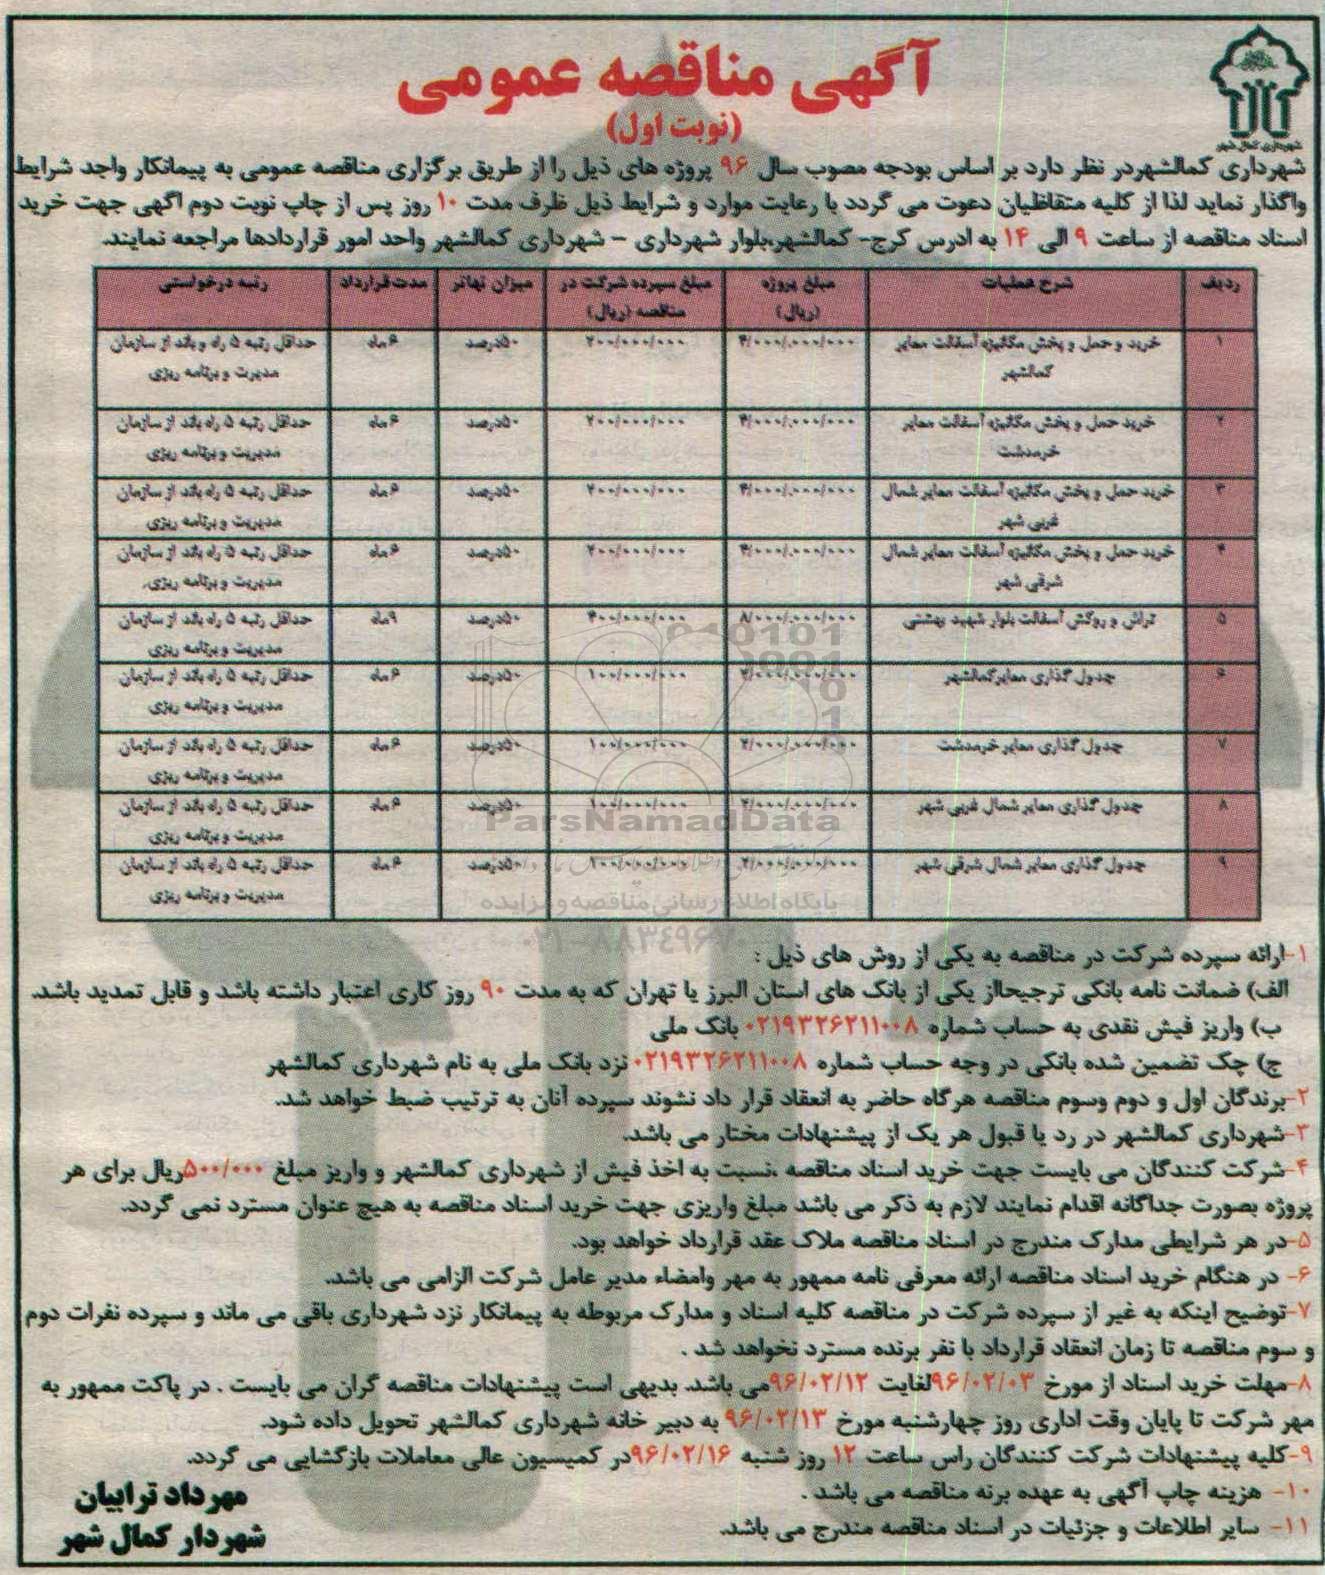 آگهی مناقصه عمومی
(نوبت اول)
شهرداری کمال شهر
شهرداری کمالشهردر نظر دارد بر اساس بودجه مصوب سال ۹۶ پروژه های ذیل را از طریق برگزاری مناقصه عمومی به پیمانکار واجد شرایط
واگذار نماید لذا از کلیه متقاظیان دعوت می گردد با رعایت موارد و شرایط ذیل ظرف مدت ۱۰ روز پس از چاپ نوبت دوم آگهی جهت خرید
اسناد مناقصه از ساعت ۹ الی ۱۴ به ادرس کرج- کمالشهر،بلوار شهرداری – شهرداری کمالشهر واحد امور قراردادها مراجعه نمایند.
ردیف شرح عملیات مبلغ پروژه (ریال) مبلغ سپرده شرکت در مناقصه (ریال) میزان تهاتر مدت قرارداد رتبه درخواستی
۱ خرید و حمل و پخش مکانیزه آسفالت معابر ۴/۰۰۰/۰۰۰/۰۰۰ ۲۰۰/۰۰۰/۰۰۰ ۵۰درصد ۶ماه حداقل رتبه ۵ راه و باند از سازمان
کمالشهر مدیرت و برنامه ریزی
۲ خرید حمل و پخش مکانیزه آسفالت معابر ۴/۰۰۰/۰۰۰/۰۰۰ ۲۰۰/۰۰۰/۰۰۰ ۵۰درصد ۶ماه حداقل رتبه ۵ راه باند از سازمان
خرمدشت مدیریت و برنامه ریزی
۳ خرید حمل و پخش مکانیزه آسفالت معابر شمال ۴/۰۰۰/۰۰۰/۰۰۰ ۲۰۰/۰۰۰/۰۰۰ ۵۰درصد ۶ماه حداقل رتبه ۵ راه باند از سازمان
غربی شهر مدیریت و برنامه ریزی
۴ خرید حمل و پخش مکانیزه آسفالت معابر شمال ۴/۰۰۰/۰۰۰/۰۰۰ ۲۰۰/۰۰۰/۰۰۰ ۵۰درصد ۶ماه حداقل رتبه ۵ راه باند از سازمان
شرقی شهر مدیریت و برنامه ریزی.
۵ تراش و روکش آسفالت بلوار شهید بهشتی ۸/۰۰۰/۰۰۰/۰۰۰ ۴۰۰/۰۰۰/۰۰۰ ۵۰درصد ۹ماه حداقل رتبه ۵ راه باند از سازمان
مدیریت و برنامه ریزی
۶ جدول گذاری معابرکمالشهر ۲/۰۰۰/۰۰۰/۰۰۰ ۱۰۰/۰۰۰/۰۰۰ ۵۰درصد ۶ماه حداقل رتبه ۵ راه باند از سازمان
مدیریت و برنامه ریزی
۷ جدول گذاری معابر خرمدشت ۲/۰۰۰/۰۰۰/۰۰۰ ۱۰۰/۰۰۰/۰۰۰ ۵۰درصد ۶ماه حداقل رتبه ۵ راه باند از سازمان
مدیریت و برنامه ریزی
۸ جدول گذاری معابر شمال غربی شهر ۲/۰۰۰/۰۰۰/۰۰۰ ۱۰۰/۰۰۰/۰۰۰ ۵۰درصد ۶ماه حداقل رتبه ۵ راه باند از سازمان
مدیریت و برنامه ریزی
۹ جدول گذاری معابر شمال شرقی شهر ۲/۰۰۰/۰۰۰/۰۰۰ ۱۰۰/۰۰۰/۰۰۰ ۵۰درصد ۶ماه حداقل رتبه ۵ راه باند از سازمان
مدیریت و برنامه ریزی
ParsNamadData
پایگاه اطلاع رسانی مناقصه و مزایده
۰۲۱-۸۸۳۴۹۶۷۰
۱-ارائه سپرده شرکت در مناقصه به یکی از روش های ذیل :
الف) ضمانت نامه بانکی ترجیحااز یکی از بانک های استان البرز یا تهران که به مدت ۹۰ روز کاری اعتبار داشته باشد و قابل تمدید باشد.
ب) واریز فیش نقدی به حساب شماره ۰۲۱۹۳۲۶۲۱۱۰۰۸ بانک ملی
ج) چک تضمین شده بانکی در وجه حساب شماره ۰۲۱۹۳۲۶۲۱۱۰۰۸ نزد بانک ملی به نام شهرداری کمالشهر
۲-برندگان اول و دوم وسوم مناقصه هرگاه حاضر به انعقاد قرار داد نشوند سپرده آنان به ترتیب ضبط خواهد شد.
۳-شهرداری کمالشهر در رد یا قبول هر یک از پیشنهادات مختار می باشد.
۴-شرکت کنندگان می بایست جهت خرید اسناد مناقصه ،نسبت به اخذ فیش از شهرداری کمالشهر و واریز مبلغ ۵۰۰/۰۰۰ریال برای هر
پروژه بصورت جداگانه اقدام نمایند لازم به ذکر می باشد مبلغ واریزی جهت خرید اسناد مناقصه به هیچ عنوان مسترد نمی گردد.
۵-در هر شرایطی مدارک مندرج در اسناد مناقصه ملاک عقد قرارداد خواهد بود.
۶- در هنگام خرید اسناد مناقصه ارائه معرفی نامه ممهور به مهر وامضاء مدیر عامل شرکت الزامی می باشد.
۷-توضیح اینکه به غیر از سپرده شرکت در مناقصه کلیه اسناد و مدارک مربوطه به پیمانکار نزد شهرداری باقی می ماند و سپرده نفرات دوم
و سوم مناقصه تا زمان انعقاد قرارداد با نفر برنده مسترد نخواهد شد .
۸-مهلت خرید اسناد از مورخ ۹۶/۰۲/۰۳لغایت ۹۶/۰۲/۱۲می باشد. بدیهی است پیشنهادات مناقصه گران می بایست . در پاکت ممهور به
مهر شرکت تا پایان وقت اداری روز چهارشنبه مورخ ۹۶/۰۲/۱۳ به دبیر خانه شهرداری کمالشهر تحویل داده شود.
۹-کلیه پیشنهادات شرکت کنندگان راس ساعت ۱۲ روز شنبه ۹۶/۰۲/۱۶در کمیسیون عالی معاملات بازگشایی می گردد.
۱۰- هزینه چاپ آگهی به عهده برنه مناقصه می باشد .
۱۱- سایر اطلاعات و جزئیات در اسناد مناقصه مندرج می باشد.
مهرداد ترابیان
شهردار کمال شهر